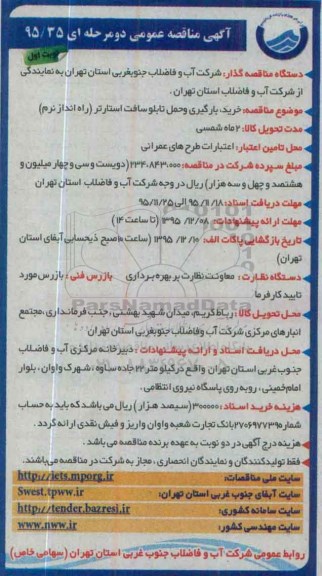 آگهی مناقصه عمومی دومرحله ای ۹۵/۳۵
نوبت اول
دستگاه مناقصه گذار: شرکت آب و فاضلاب جنوبغربی استان تهران به نمایندگی
از شرکت آب و فاضلاب استان تهران.
موضوع مناقصه: خرید، بارگیری وحمل تابلو سافت استارتر (راه انداز نرم)
مدت تحویل کالا: ۲ ماه شمسی
محل تامین اعتبار: اعتبارات طرح های عمرانی
مبلغ سپرده شرکت در مناقصه: ۲۳۴،۸۴۳،۰۰۰ (دویست و سی و چهار میلیون و
هشتصد و چهل و سه هزار) ریال در وجه شرکت آب و فاضلاب استان تهران
مهلت دریافت اسناد: ۹۵/۱۱/۱۸ الی ۹۵/۱۱/۲۵
مهلت ارائه پیشنهادات: ۱۳۹۵/۱۲/۰۸ (تا ساعت ۱۴)
تاریخ بازگشایی پاکات الف: ۱۳۹۵/۱۲/۱۰ (ساعت ۱۰ صبح ذیحسابی آبفای استان
تهران)
دستگاه نظارت: معاونت نظارت بر بهره برداری بازرس فنی: بازرس مورد
تایید کارفرما
محل تحویل کالا: رباط کریم، میدان شهید بهشتی، جنب فرمانداری، مجتمع
انبارهای مرکزی شرکت آب وفاضلاب جنوبغربی استان تهران
محل دریافت اسناد و ارائه پیشنهادات: دبیرخانه مرکزی آب و فاضلاب
جنوب غربی استان تهران واقع در کیلومتر ۲۲ جاده ساوه، شهرک واوان، بلوار
امام خمینی، روبه روی پاسگاه نیروی انتظامی.
هزینه خرید اسناد: ۳۰۰۰۰۰ (سیصد هزار) ریال می باشد که باید به حساب
شماره ۲۷۰۶۹۷۷۳۹۵ بانک تجارت شعبه واوان واریز و فیش نقدی ارائه گردد.
هزینه درج آگهی در دو نوبت به عهده برنده مناقصه می باشد.
فقط تولیدکنندگان و نمایندگان انحصاری، مجاز به شرکت در مناقصه می باشند.
سایت ملی مناقصات: http://iets.mporg.ir
سایت آبفای جنوب غربی استان تهران: Swest.tpww.ir
سایت سامانه کشوری: http://tender.bazresi.ir
سایت مهندسی کشور: www.nww.ir
روابط عمومی شرکت آب و فاضلاب جنوب غربی استان تهران (سهامی خاص)
ParsNamadData